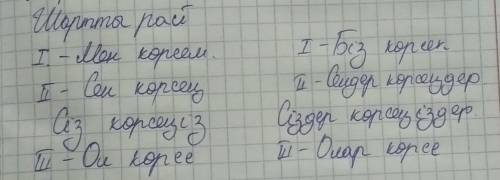 Шартты рай
I - Мен корсем.
II - Сен корсең
Сіз корсеңіз
III - Ол корсе
I - Біз корсек
II - Сендер корсеңдер
Сіздер корсеңіздер.
III - Олар корсе